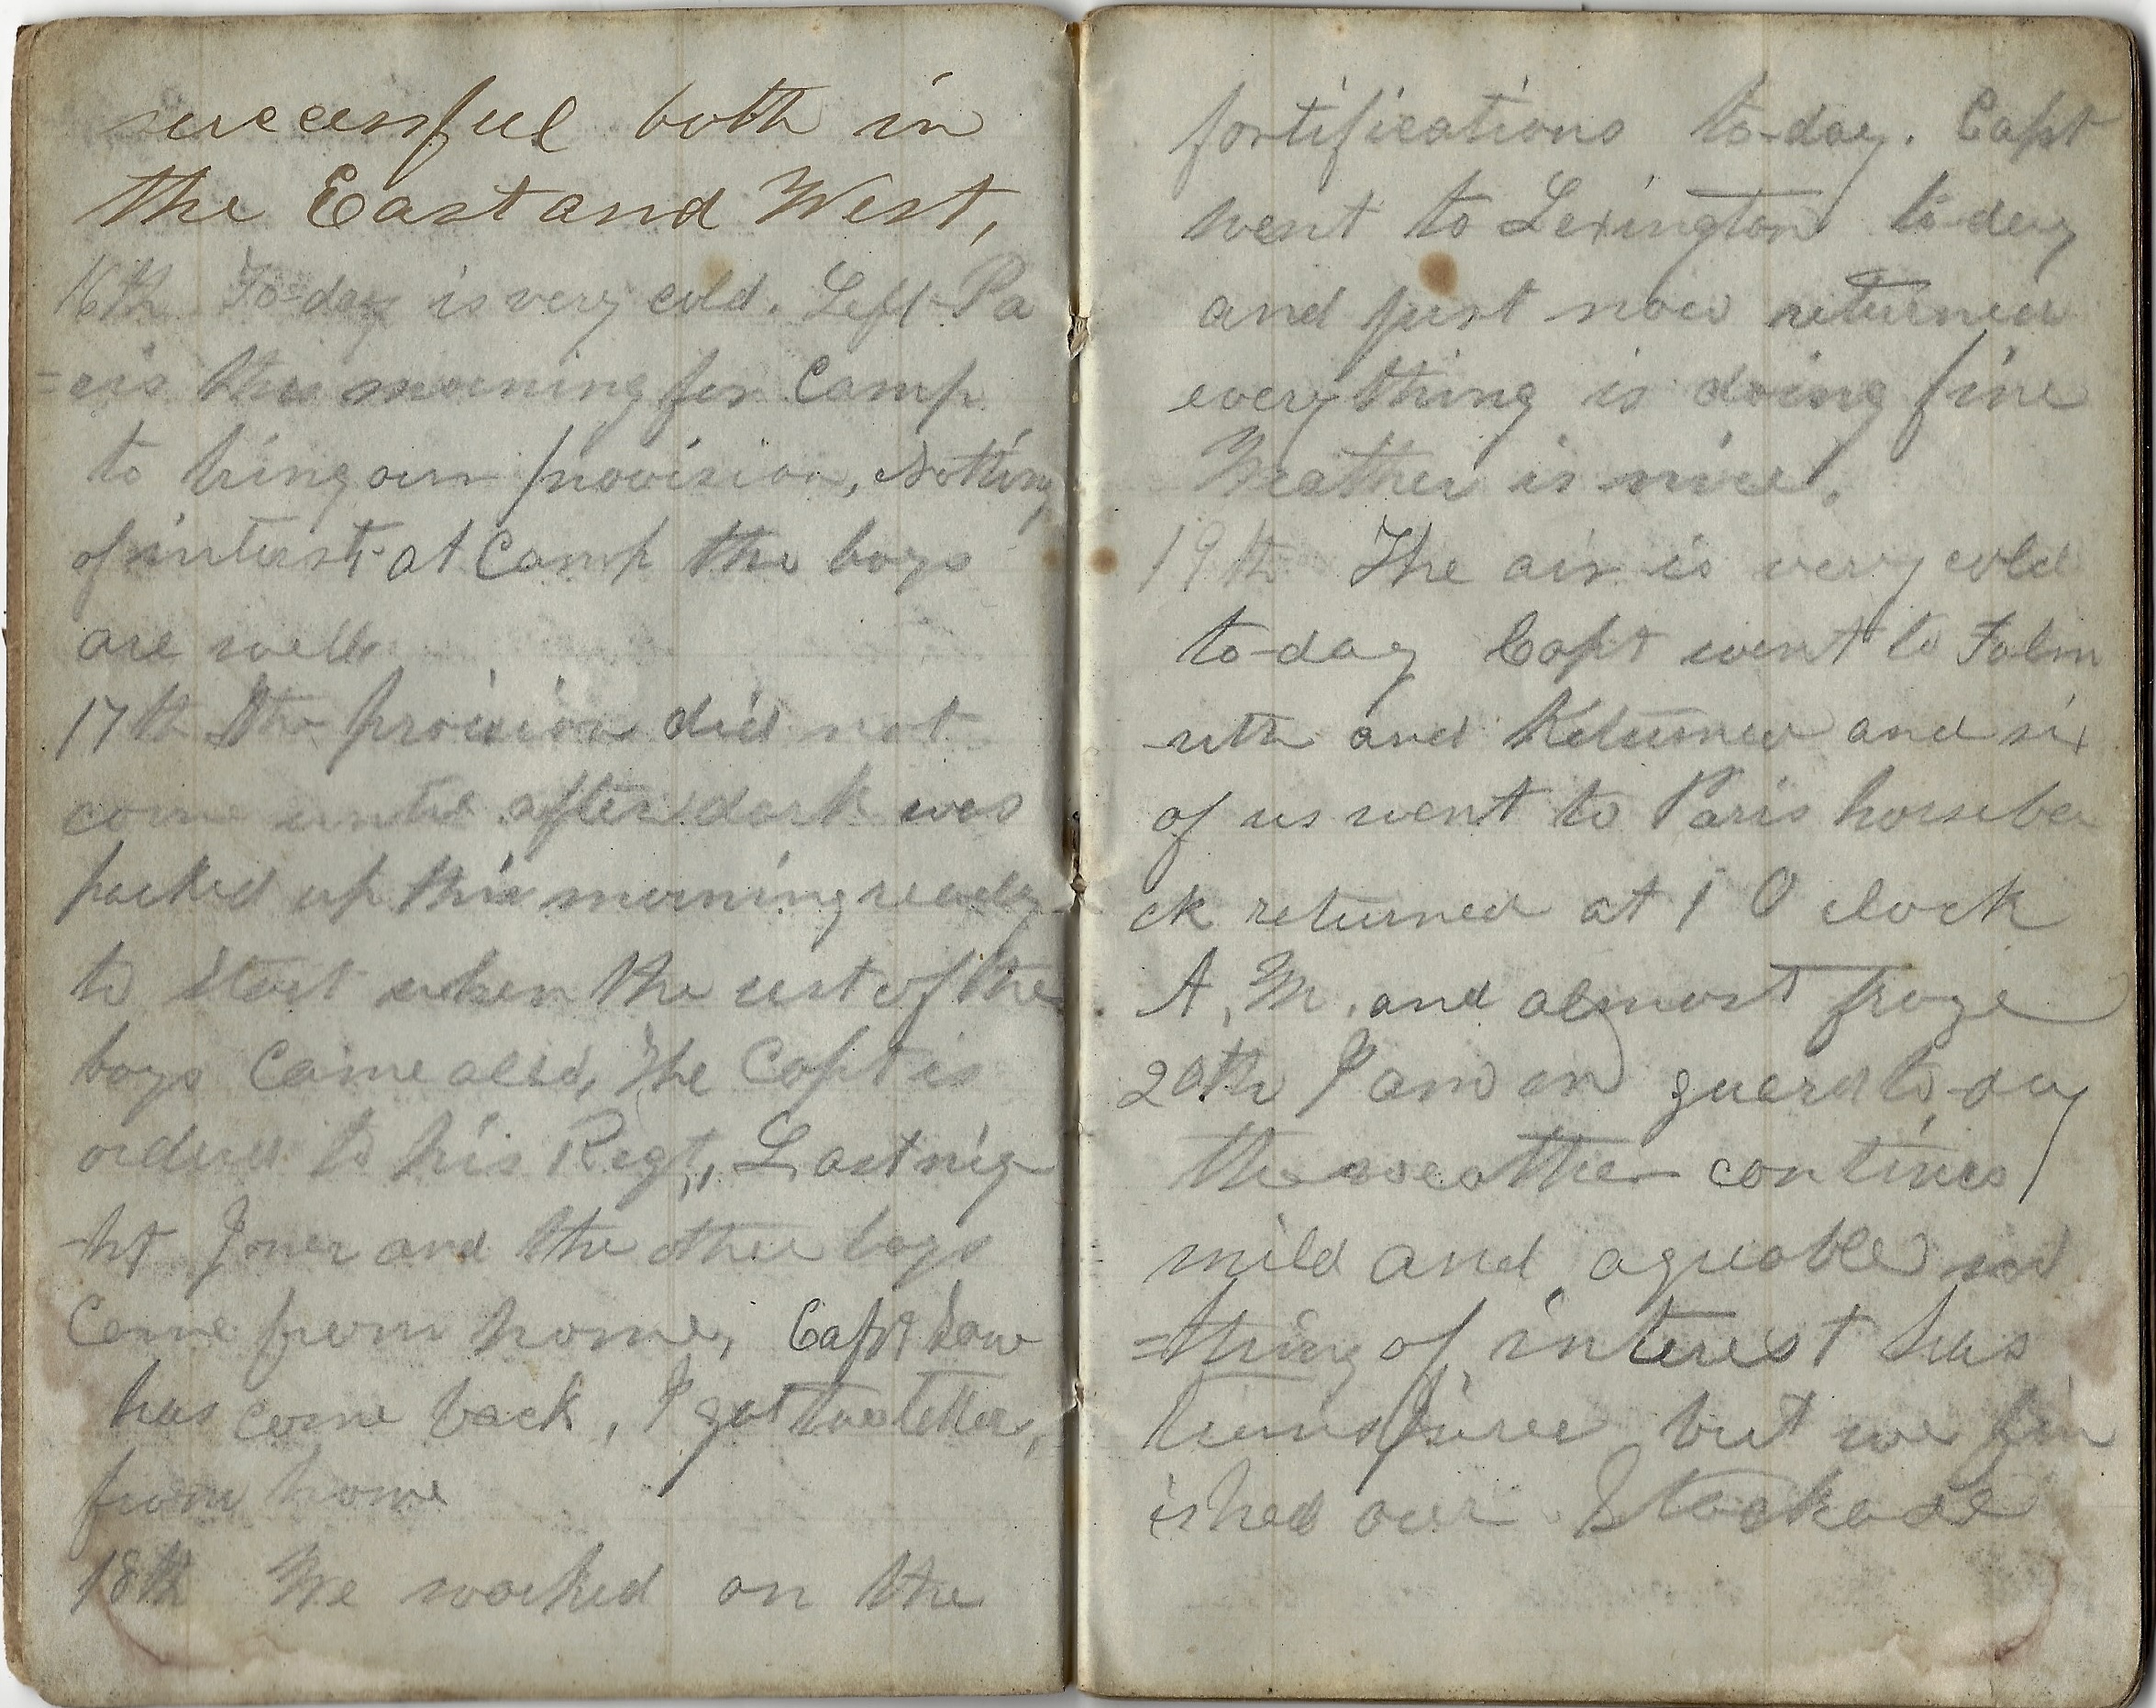 successful both in
the East and West,
16th To-day is very cold. Left Pa
=ris this morning for Camp
to bring our provision, Nothing
of interst at Camp the boys
are well
17th The provision did not
come until after dark was
packed up this morning ready
to start when the rest of the
boys Came also, The Capt is
ordered to his Regt, Last nig
-ht Joner and the other boys
Came from home, Capt Low
has come back, I got two letters,
from home
18th We worked on the
fortifications to-day. Capt
went to Lexington to-day
and just now returned
everything is doing fine
Weather is nice.
19th The air is very cold
to-day Capt went to Falm
-uth and Returned and six
of us went to Paris horseba
ck returned at 1 O clock
A, M, and almost froze
20th I am on guard to-day
the weather contines
mild and agreable no
=thing of interest has
transpired but we fin
ished our Stockade